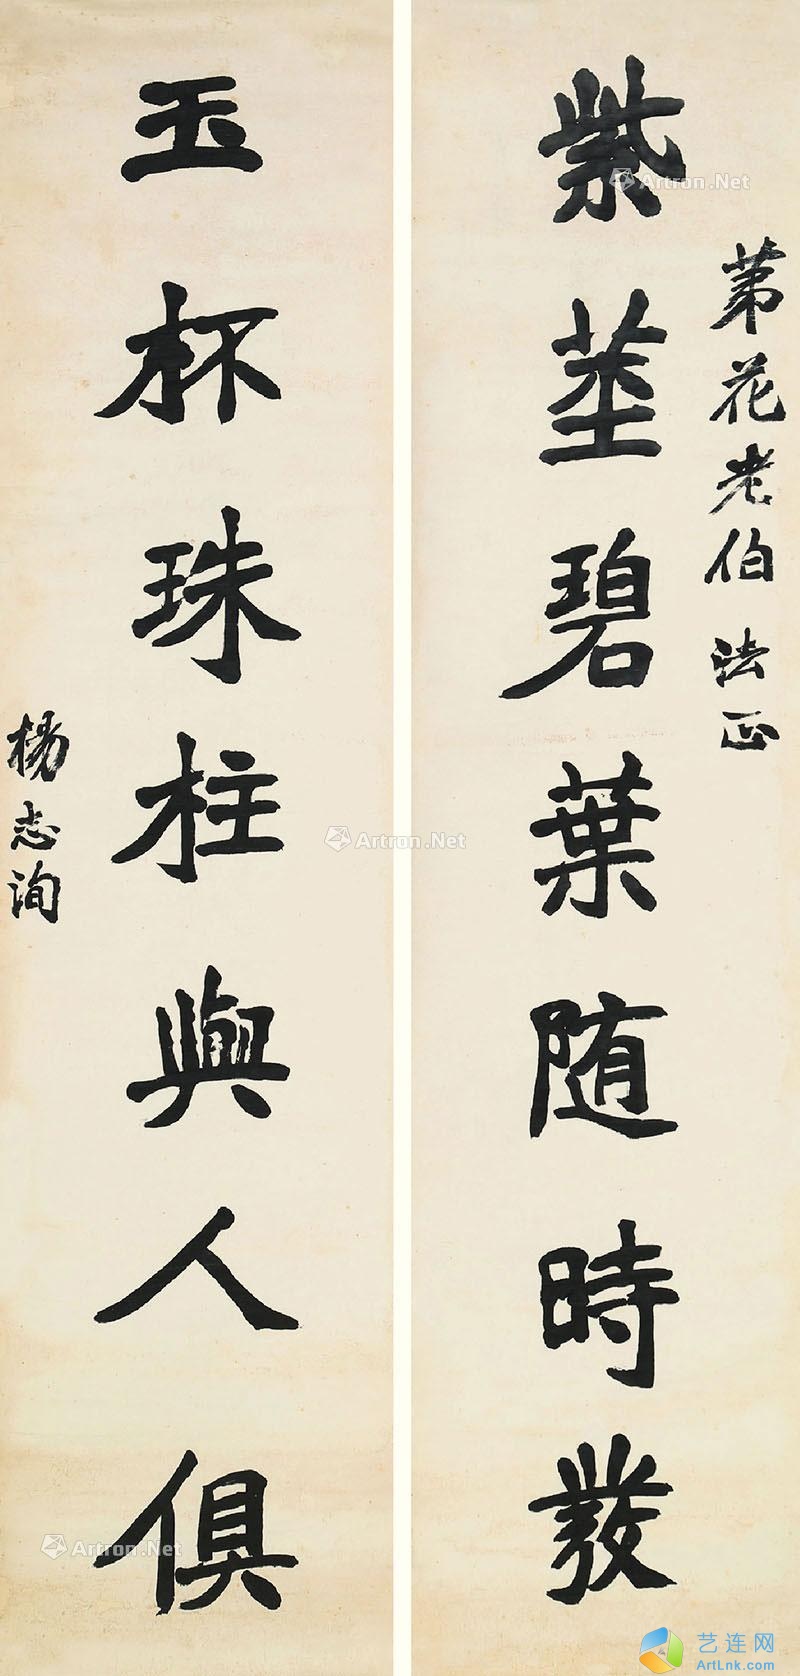 苐花老伯法正
紫莖碧葉随時發
玉杯珠柱與人俱
楊志洵
Artron.Net
Artron.Net
Artron.Net
艺连网
ArtLnk.com